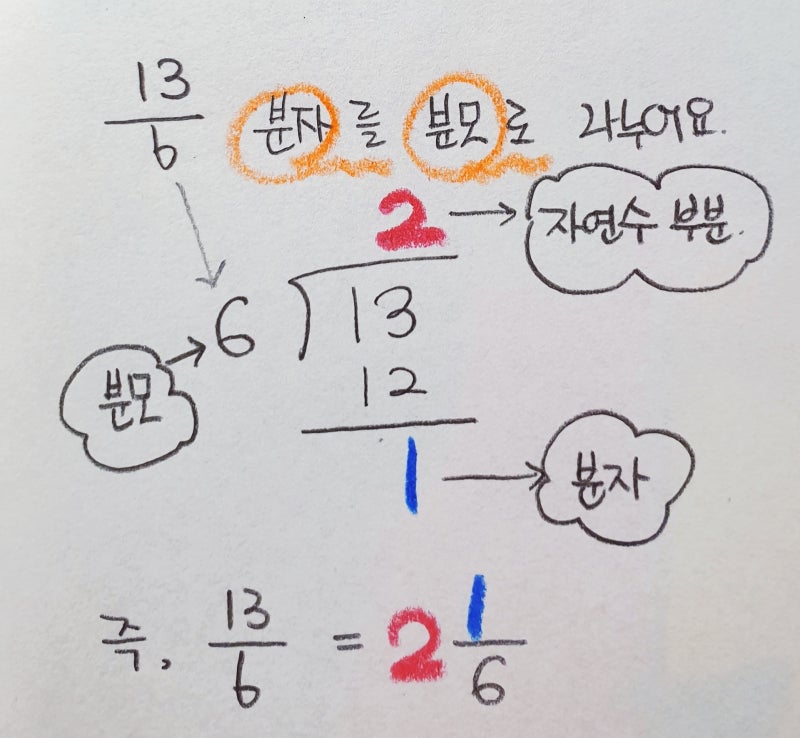 13/6 분자를 분모로 나누어요.
2 → 자연수 부분.
분모 → 6 ) 13
12
1 → 분자
즉, 13/6 = 2 1/6